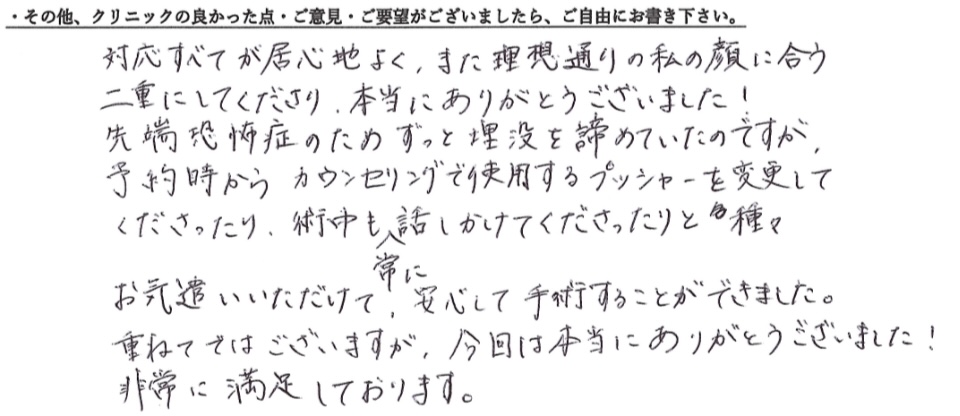 ・その他、クリニックの良かった点・ご意見・ご要望がございましたら、ご自由にお書き下さい。
対応すべてが居心地よく、また理想通りの私の顔に合う
二重にしてくださり、本当にありがとうございました!
先端恐怖症のためずっと埋没を諦めていたのですが、
予約時からカウンセリングで使用するプッシャーを変更して
くださったり、術中も常に話しかけてくださったりと各種々
お気遣いいただけて、安心して手術することができました。
重ねてではございますが、今回は本当にありがとうございました!
非常に満足しております。